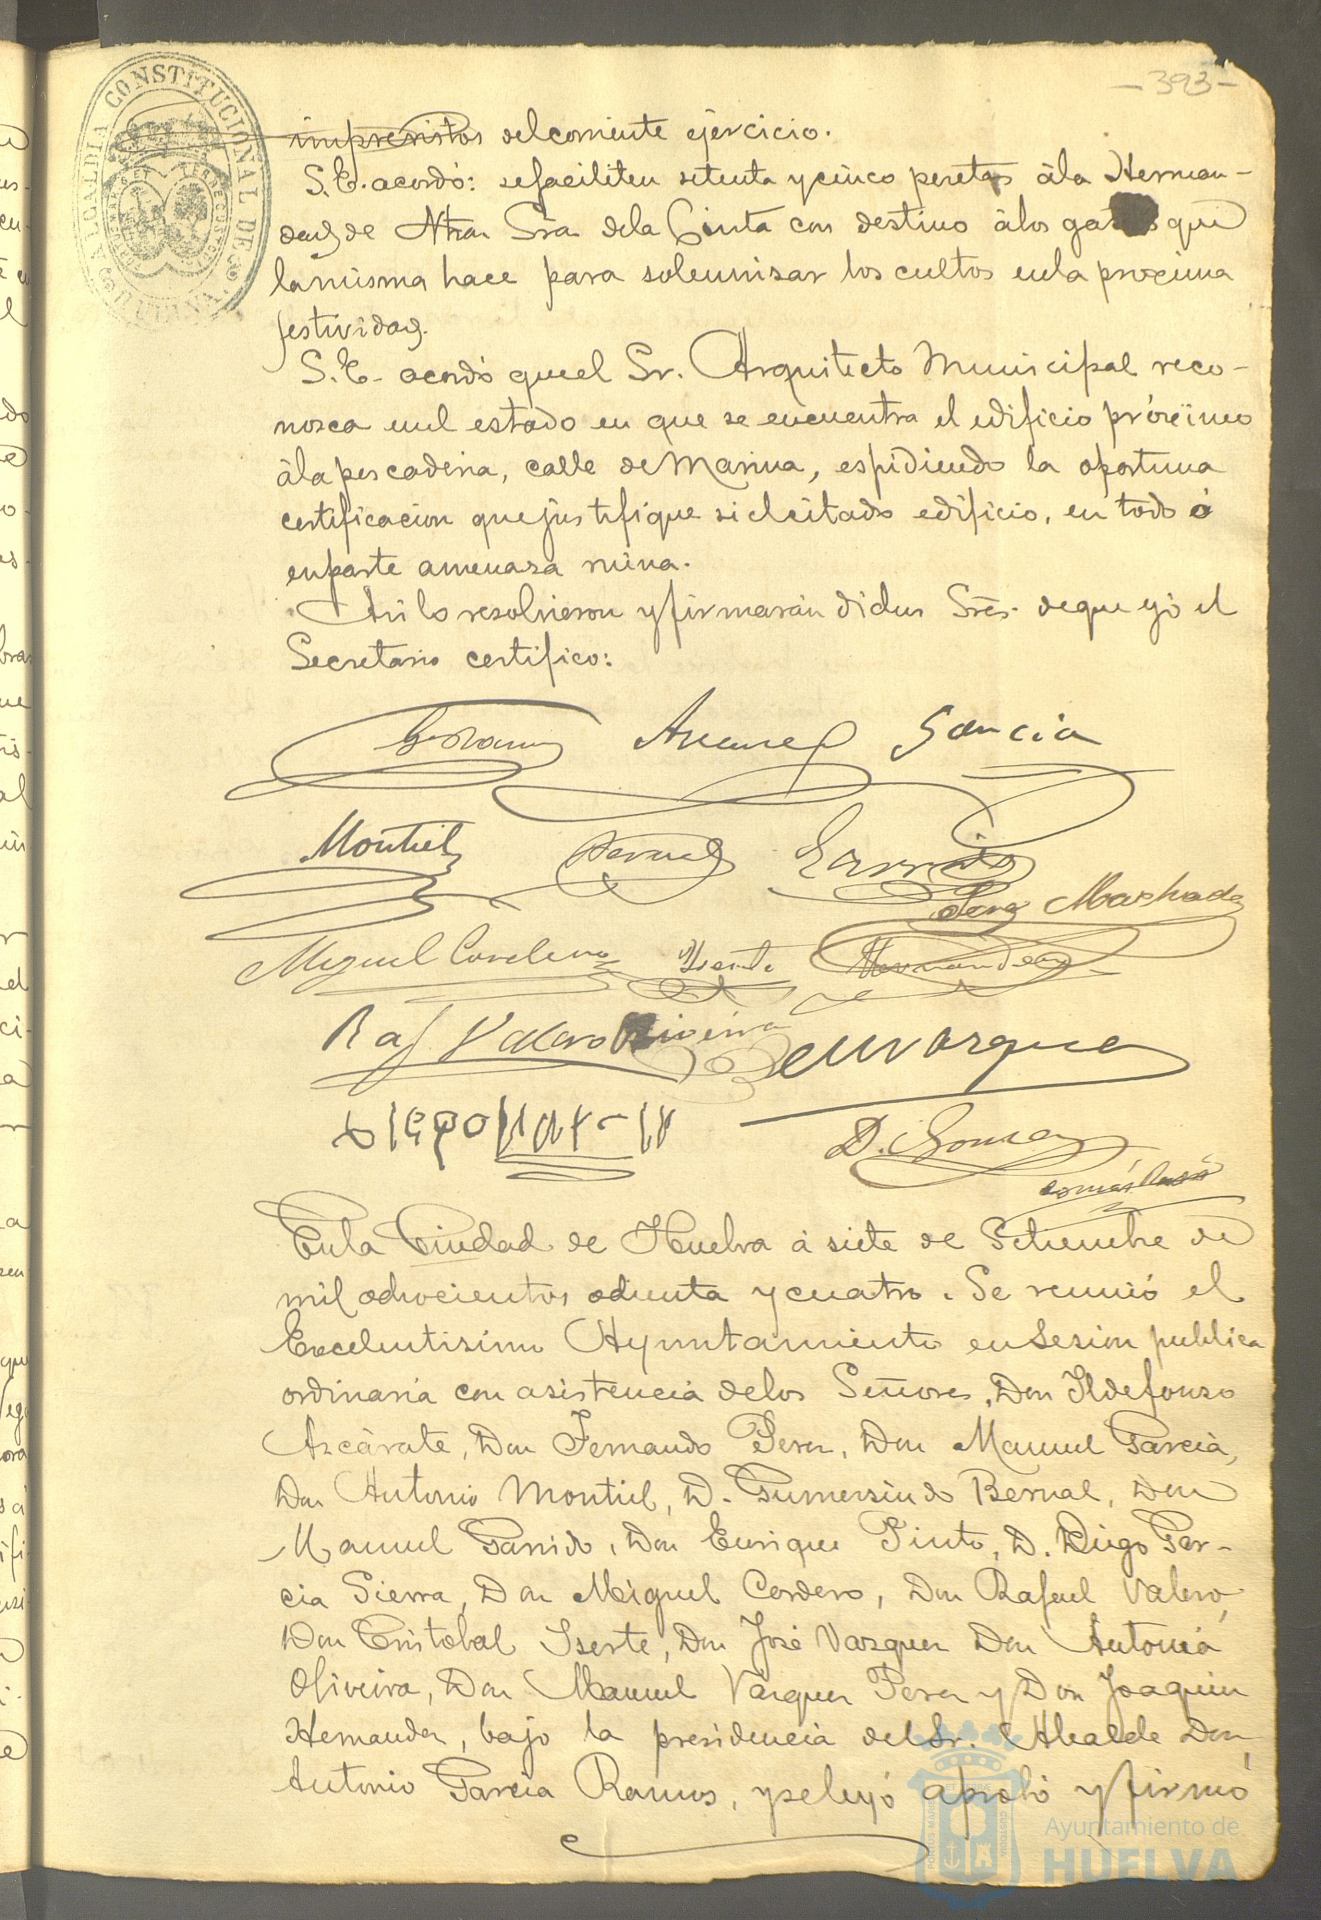 - 393 -
ALCALDIA CONSTITUCIONAL DE
imprevistos del corriente ejercicio.
S.E. acordó: se faciliten setenta y cinco pesetas á la Herman-
dad de Ntra Sra de la Cinta con destino á los gastos que
la misma hace para solemnisar los cultos en la proxima
festividad.
S.E. acordó que el Sr. Arquitecto Municipal reco-
nosca en el estado en que se encuentra el edificio próximo
á la pescaderia, calle de Marina, espidiendo la oportuna
certificacion que justifique si el citado edificio, en todo ó
en parte amenasa ruina.
Asi lo resolvieron y firmarán dichos Sres. de que yó el
Secretario certifico:
Garcia
Montiel Bernal Garrido
Perez Machado
Miguel Cordero Iserte Hernandez
Raf Valero Oliveira
D. Gomez
En la Ciudad de Huelva á siete de Setiembre de
mil ochocientos ochenta y cuatro. Se reunió el
Excelentisimo Ayuntamiento en Sesion publica
ordinaria con asistencia de los Señores, Don Ildefonso
Azcárate, Don Fernando Perez, Don Manuel Garcia,
Don Antonio Montiel, D. Gumersindo Bernal, Don
Manuel Garrido, Don Enrique Pinto, D. Diego Gar-
cia Sierra, Don Miguel Cordero, Don Rafael Valero,
Don Cristobal Iserte, Don José Vazquez Don Antonio
Oliveira, Don Manuel Vazquez Perez y Don Joaquin
Hernandez, bajo la presidencia del Sr. Alcalde Don
Antonio Garcia Ramos, y se leyó aprobó y firmó
Ayuntamiento de
HUELVA